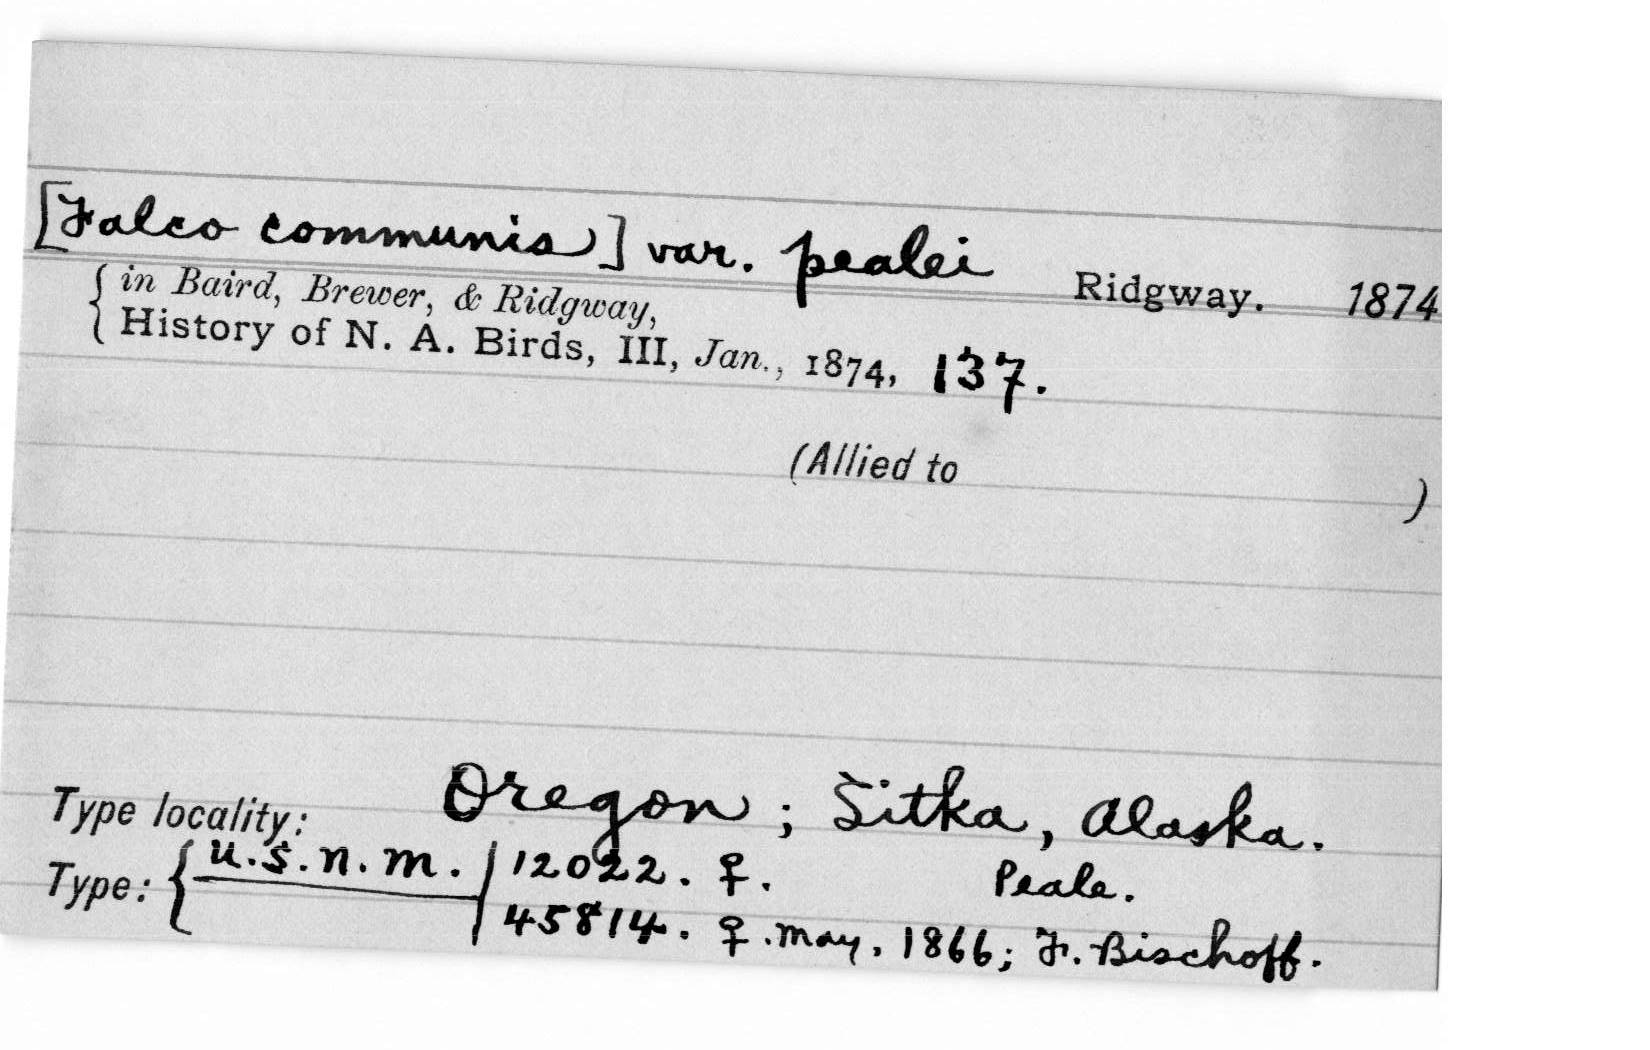 [Falco communis] var. pealei Ridgway. 1874
{ in Baird, Brewer, & Ridgway,
History of N. A. Birds, III, Jan., 1874, 137.
(Allied to )
Type locality: Oregon ; Sitka, Alaska.
Type: { U.S.N.M. | 12022. ♀. Peale.
45814. ♀. May, 1866; F. Bischoff.